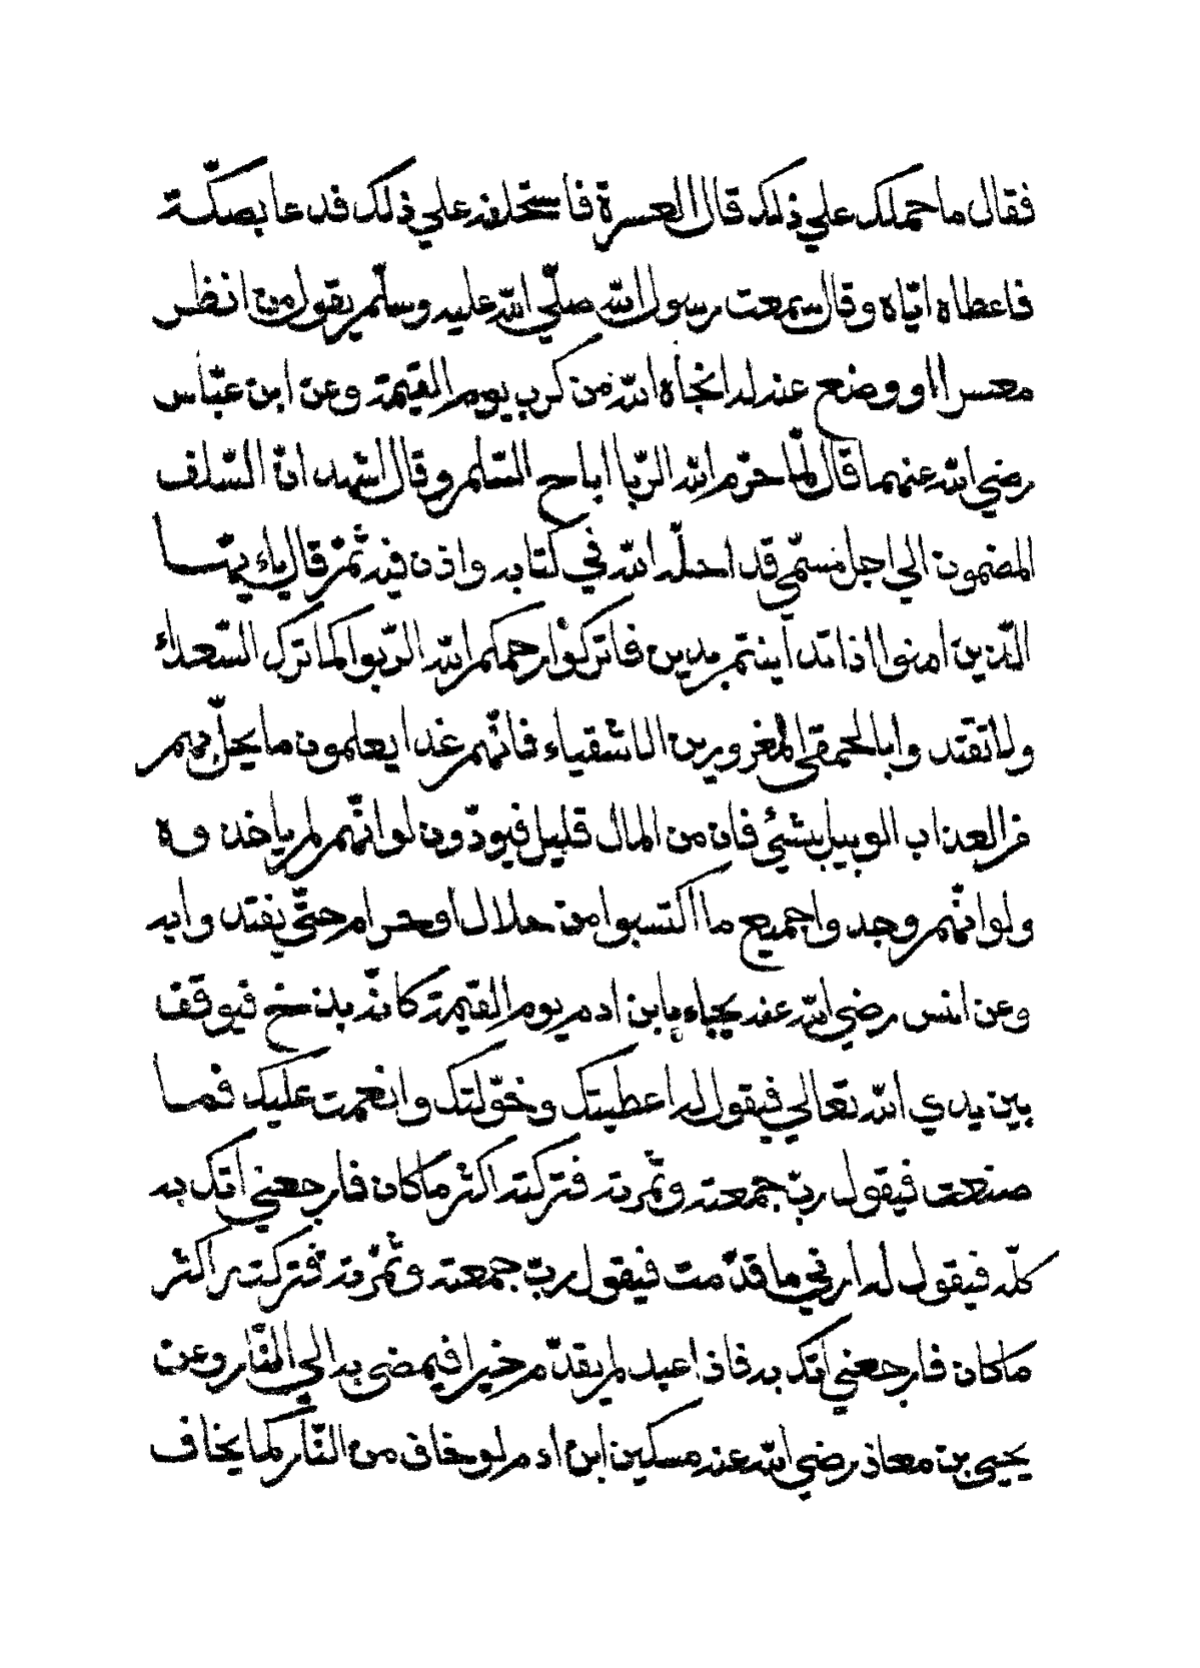 فقال ما حملك علي ذلك قال العسرة فاستحلفه علي ذلك فدعا بصكّة
فاعطاه ايّاه وقال سمعت رسول الله صلّي الله عليه وسلّم يقول من انظر
معسرا او وضع عند له انجاه الله من كرب يوم القيمة وعن ابن عبّاس
رضي الله عنهما قال لمّا حرّم الله الرّبا اباح السّلم وقال اشهد انّ السّلف
المضمون الي اجل مسمّي قد احلّه الله في كتابه واذن فيه ثمّ قال ياء يّها
الّذين امنوا اذا تداينتم بدين فاتركوا رحمكم الله الرّبوا كما ترك السّعداء
ولا تقتدوا بالحمقي المغرورين الاشقياء فانّهم غدا يعلمون ما يحلّ بهم
من العذاب الوبيل بشيئ فان من المال قليل فيودّون لو انّهم لم ياخذوه
ولو انّهم وجدوا جميع ما اكتسبوا من حلال او حرام حتّي يفتدوا به
وعن انس رضي الله عنه يجاء بابن ادم يوم القيمة كانّه بذخ فيوقف
بين يدي الله تعالي فيقول له اعطيتك وخوّلتك وانعمت عليك فما
صنعت فيقول ربّ جمعته وثمّرته فتركته اكثر ما كان فارجعني اتك به
كلّه فيقول له ارني ما قدّمت فيقول ربّ جمعته وثمّرته فتركته اكثر
ما كان فارجعني اتك به فاذا عبد لم يقدّم خيرا فيمضي به الي النّار وعن
يحيي بن معاذ رضي الله عنه مسكين ابن ادم لو خاف من النّار كما يخاف